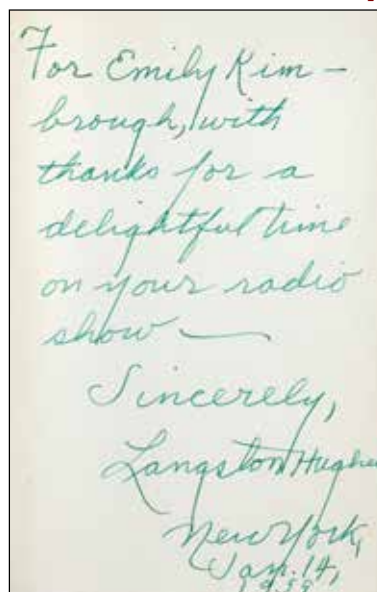 For Emily Kim-
brough, with
thanks for a
delightful time
on your radio
show —
Sincerely,
Langston Hughes
New York,
Jan. 14,